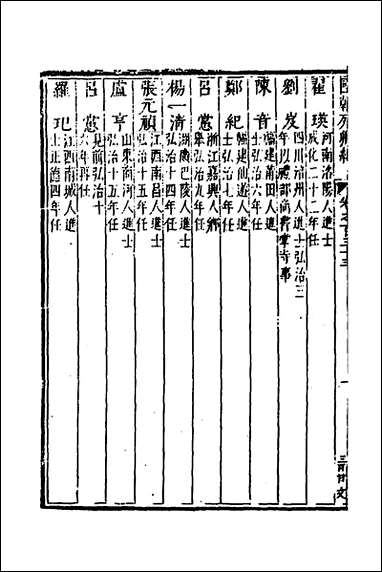 國朝列卿紀 卷之一百三十三
翟瑛 河南洛陽人進士
成化二十二年任
劉岌 四川涪州人進士弘治三
年以禮部尚書掌寺事
陳音 福建莆田人進
士弘治六年任
鄭紀 福建仙遊人進
士弘治七年任
呂㦂 浙江嘉興人鄉
舉弘治九年任
楊一清 湖廣巴陵人進士
弘治十四年任
張元禎 江西南昌人進士
弘治十五年任
盧亨 山東商河人進士
弘治十五年任
呂㦂 見前弘治十
六年再任
羅玘 江西南城人進
士正德四年任